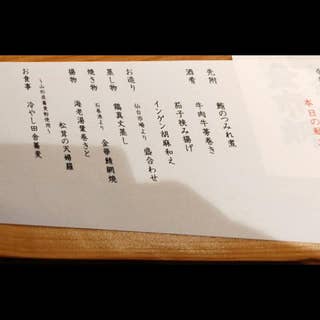 本日の
先附 鮪のつみれ煮
酒肴 牛肉牛蒡巻き
茄子挟み揚げ
インゲン胡麻和え
お造り 仙台市場より 盛合わせ
蒸し物 鶏真丈蒸し
焼き物 石巻港より 金華鯖網焼
揚物 海老湯葉巻きと
松茸の天婦羅
お食事 ～山形産蕎麦粉使用～ 冷やし田舎蕎麦